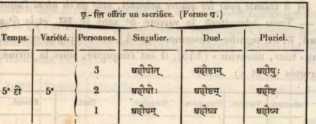 offrir un sacrifice. (Forme प.)
Temps. Variété. Personnes. Singulier. Duel. Pluriel.
3 अहौषीत् अहौष्टाम् अहौषुः
5ᵉ 5ᵉ 2 अहौषीः अहौष्टम् अहौष्ट
1 अहौषम् अहौष्व अहौष्म